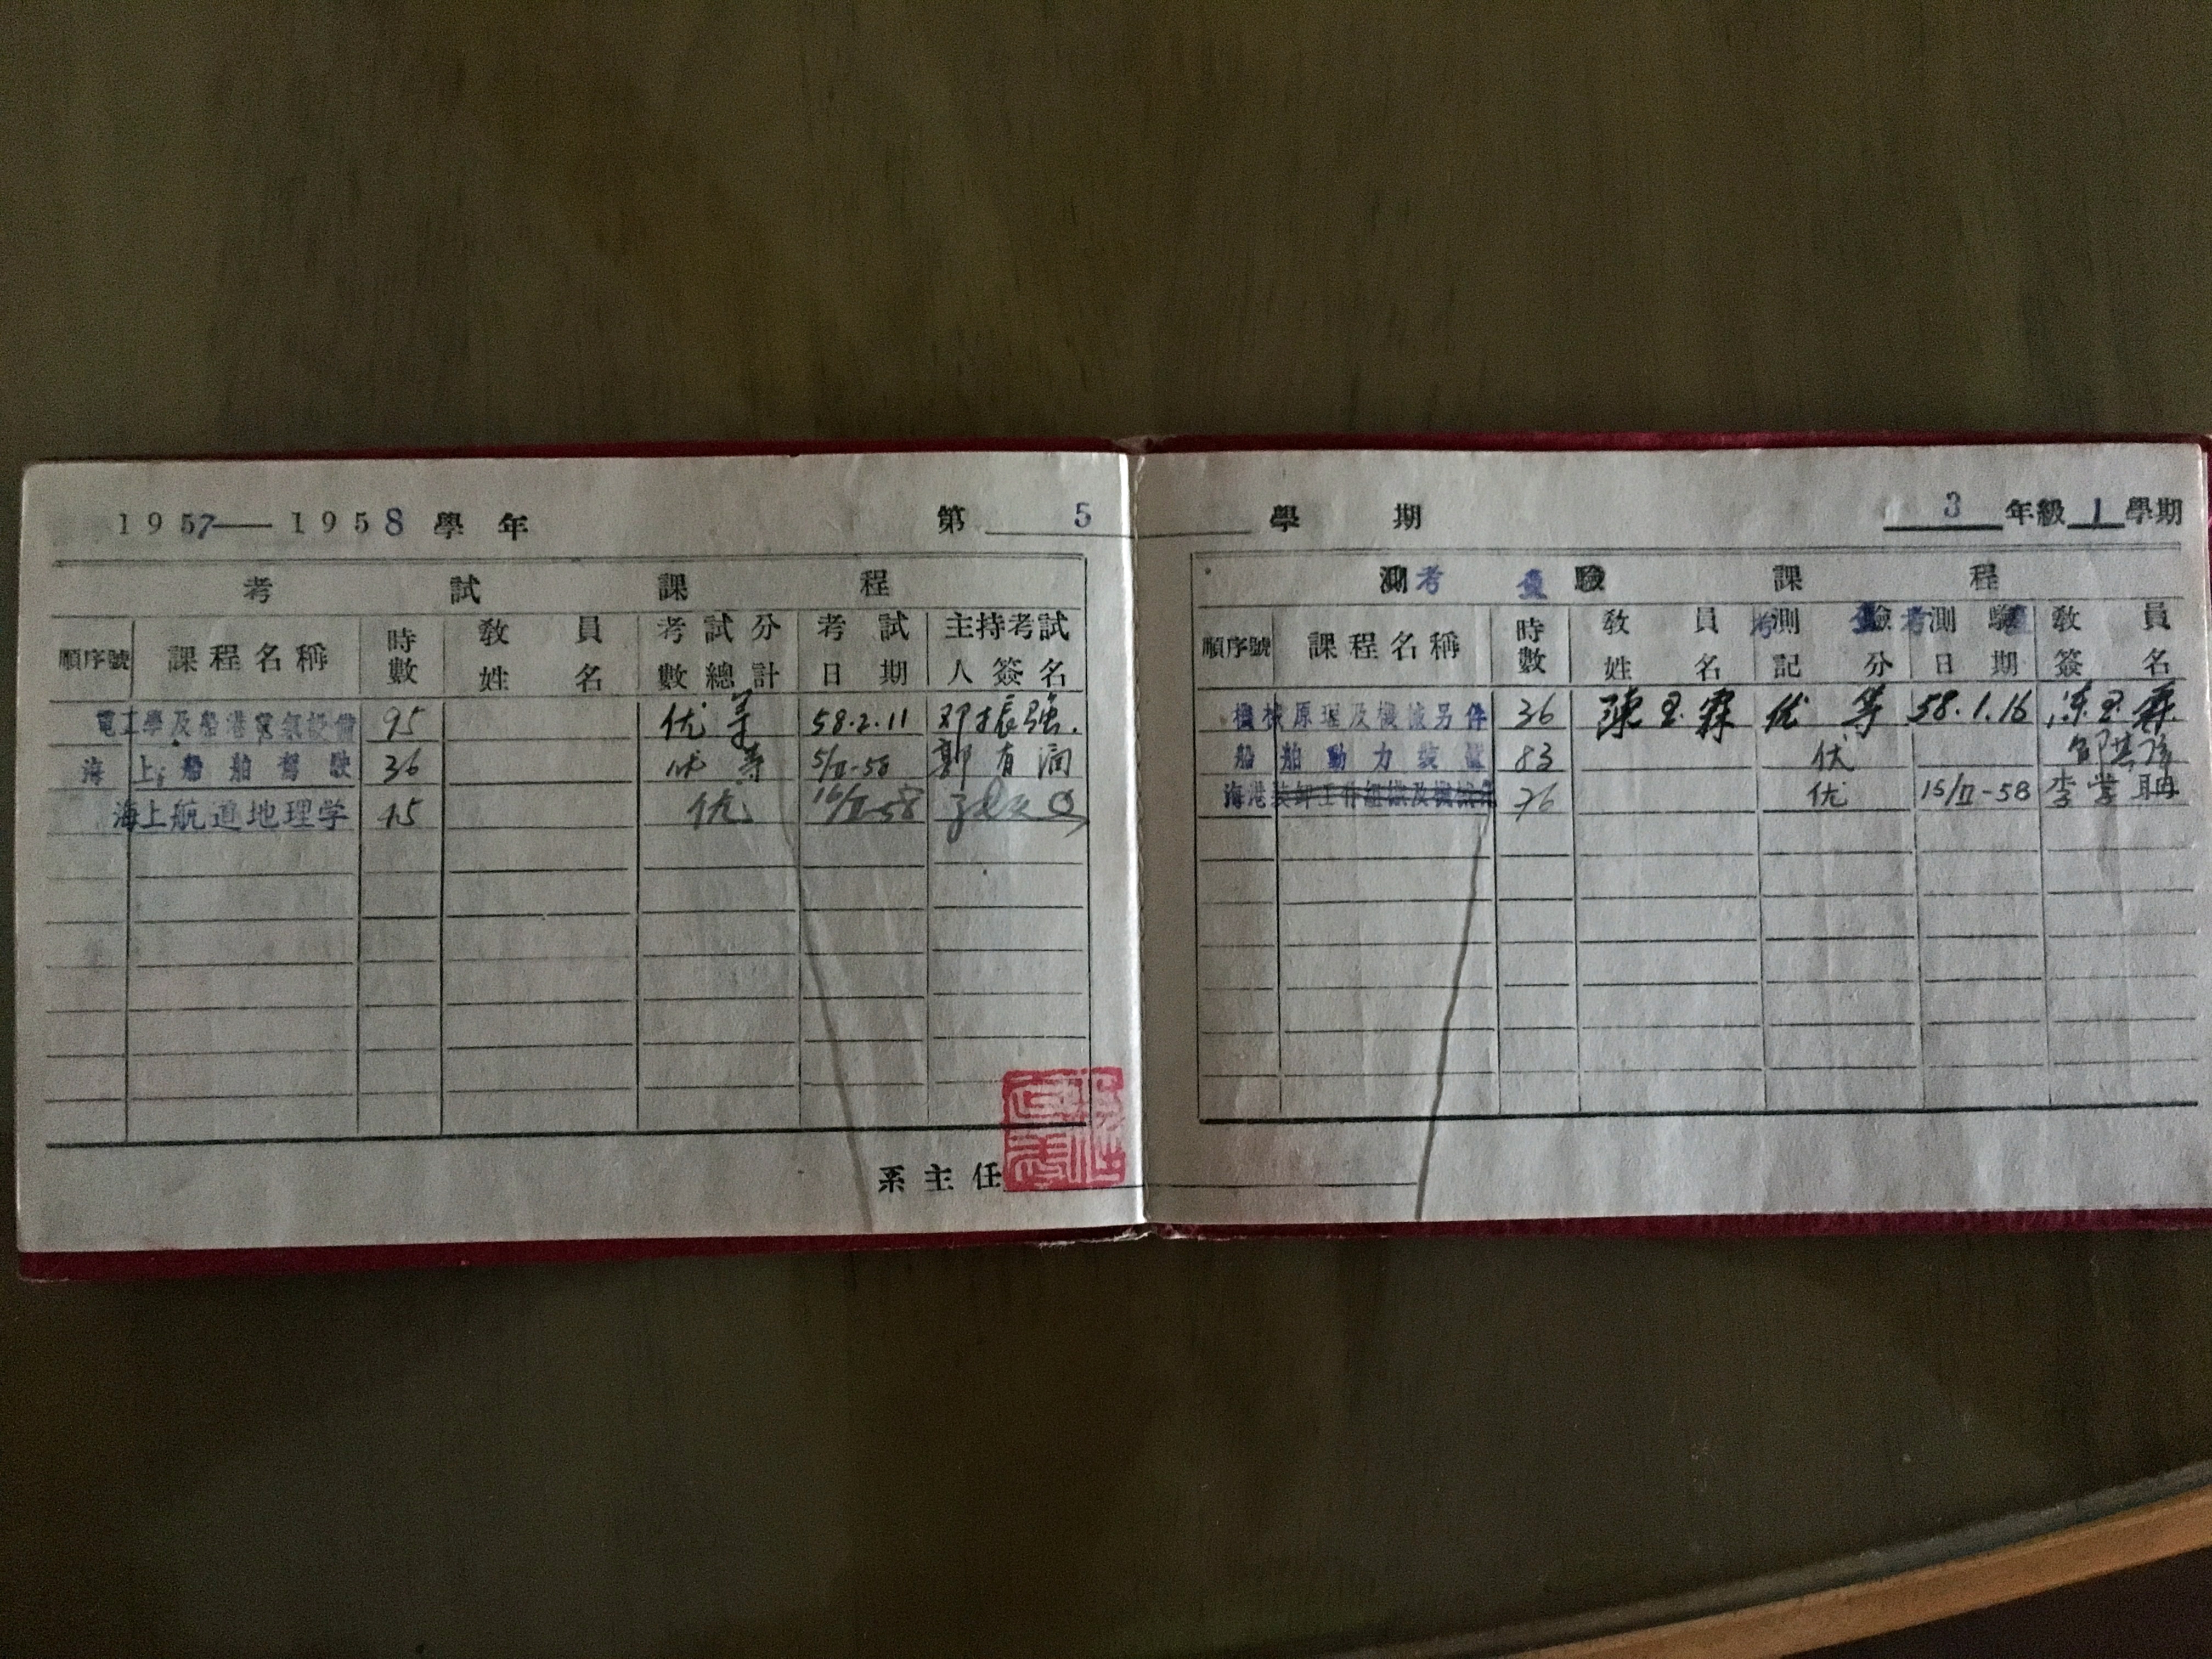 1957——1958 學年 第 5 學期 3 年級 1 學期
考試課程
順序號 課程名稱 時數 教員姓名 考試分數總計 考試日期 主持考試人簽名
電工學及船港電氣設備 95 优等 58.2.11 邓振强.
海上船舶駕駛 36 优等 5/II-58 郭有润
海上航道地理学 45 优 16/II-58
系主任
測考查驗課程
順序號 課程名稱 時數 教員姓名 考測查驗記分 考測查驗日期 教員簽名
機械原理及機械另件 36 陳玉霖 优等 58.1.16 陈玉霖
船舶動力裝置 83 优
海港装卸工作組織及機械化 76 优 15/II-58